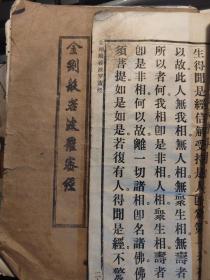 金剛般若波羅蜜經
生得聞是經信解受持是人
以故此人無我相無人相無眾生相無壽者
所以者何我相卽是非相人相眾生相壽者
卽是非相何以故離一切諸相卽名諸佛佛
須菩提如是如是若復有人得聞是經不驚